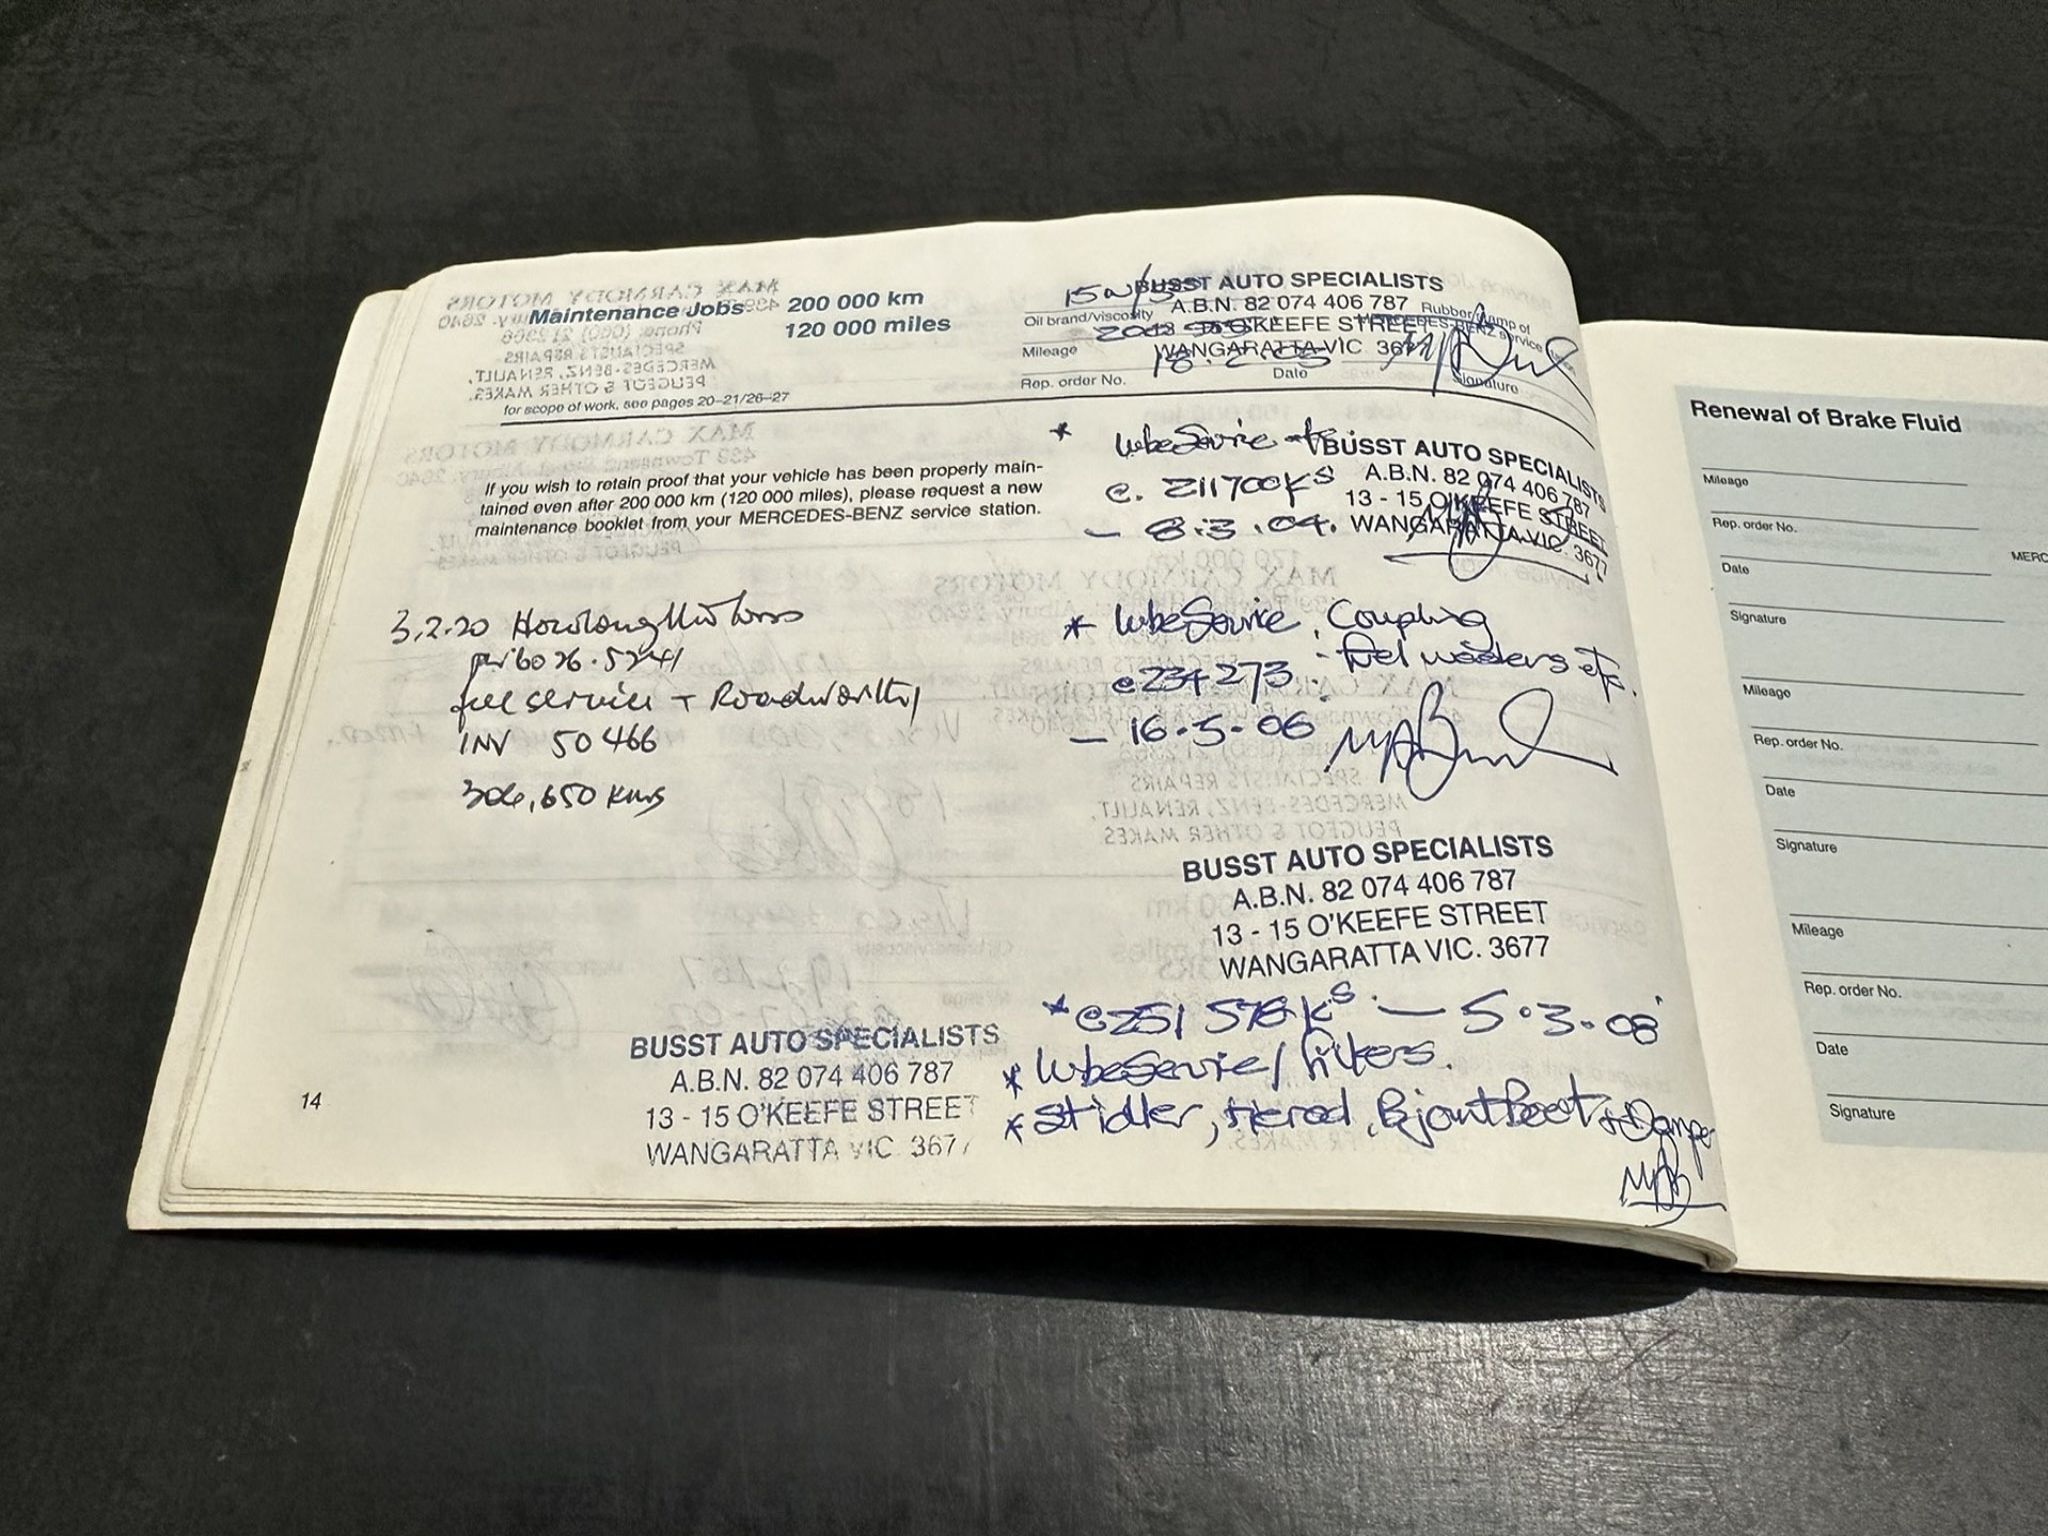 Maintenance Jobs 200 000 km
120 000 miles
for scope of work, see pages 20–21/26–27
BUSST AUTO SPECIALISTS
A.B.N. 82 074 406 787
13 - 15 O'KEEFE STREET
WANGARATTA VIC. 3677
Oil brand/viscosity
Mileage
Rep. order No.
Date
Rubber stamp of
MERCEDES-BENZ service
Signature
If you wish to retain proof that your vehicle has been properly main-
tained even after 200 000 km (120 000 miles), please request a new
maintenance booklet from your MERCEDES-BENZ service station.
* LubeService
e. 211700Ks
– 8.3.04.
BUSST AUTO SPECIALISTS
A.B.N. 82 074 406 787
13 - 15 O'KEEFE STREET
WANGARATTA VIC. 3677
3.2.20 Howlong Motors
INV 50466
306,650 kms
full service + Roadworthy
* LubeService, Coupling
e234273. - fuel washers etc.
– 16.5.06
BUSST AUTO SPECIALISTS
A.B.N. 82 074 406 787
13 - 15 O'KEEFE STREET
WANGARATTA VIC. 3677
* e251 578Ks – 5.3.08
* LubeService/filters.
* St idler, tierod, Bjoint Boot & Damper
BUSST AUTO SPECIALISTS
A.B.N. 82 074 406 787
13 - 15 O'KEEFE STREET
WANGARATTA VIC. 3677
14
Renewal of Brake Fluid
Mileage
Rep. order No.
MERC
Date
Signature
Mileage
Rep. order No.
Date
Signature
Mileage
Rep. order No.
Date
Signature